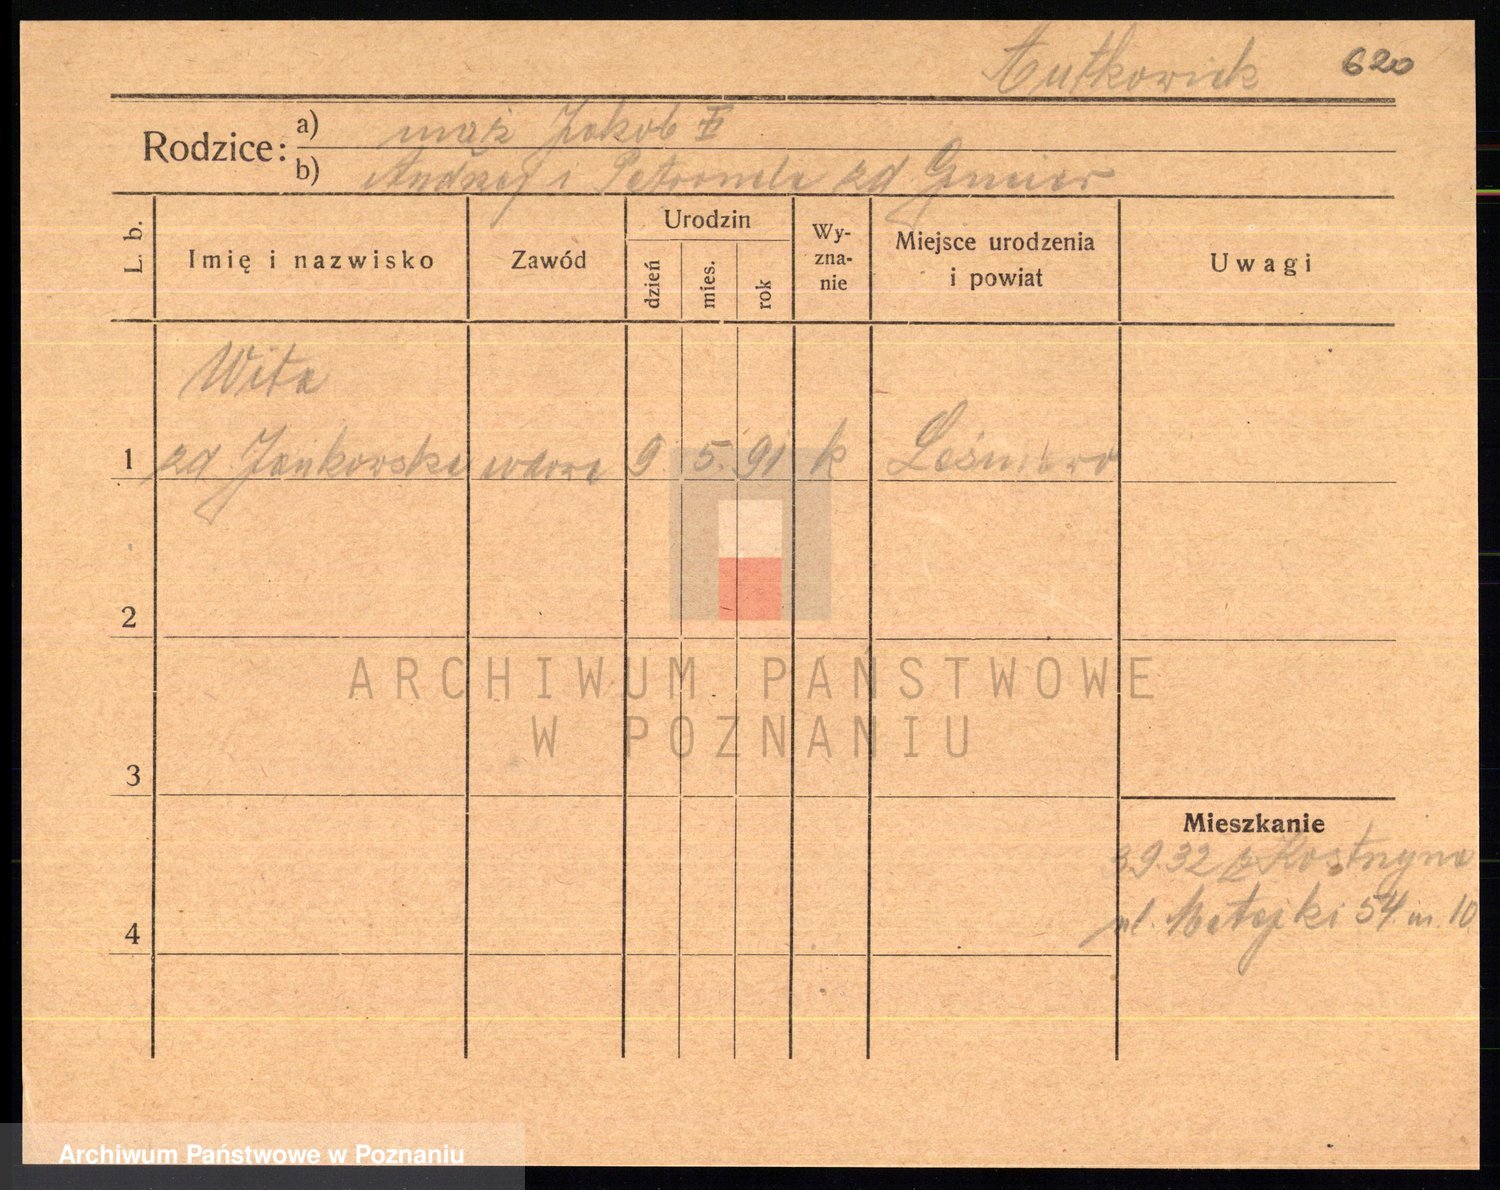 Autkowiak 620
Rodzice:
a) mąż Jakob
b) Andrzej i Petronela zd
L. b.
Imię i nazwisko
Zawód
Urodzin
dzień
mies.
rok
Wy-
zna-
nie
Miejsce urodzenia
i powiat
Uwagi
Wita
1 zd Jankowska wdowa 9 5. 91 k
2
3
4
Mieszkanie
3.9.32 z Kostrzyna
ul. Matejki 54 m. 10
ARCHIWUM PAŃSTWOWE
W POZNANIU
Archiwum Państwowe w Poznaniu